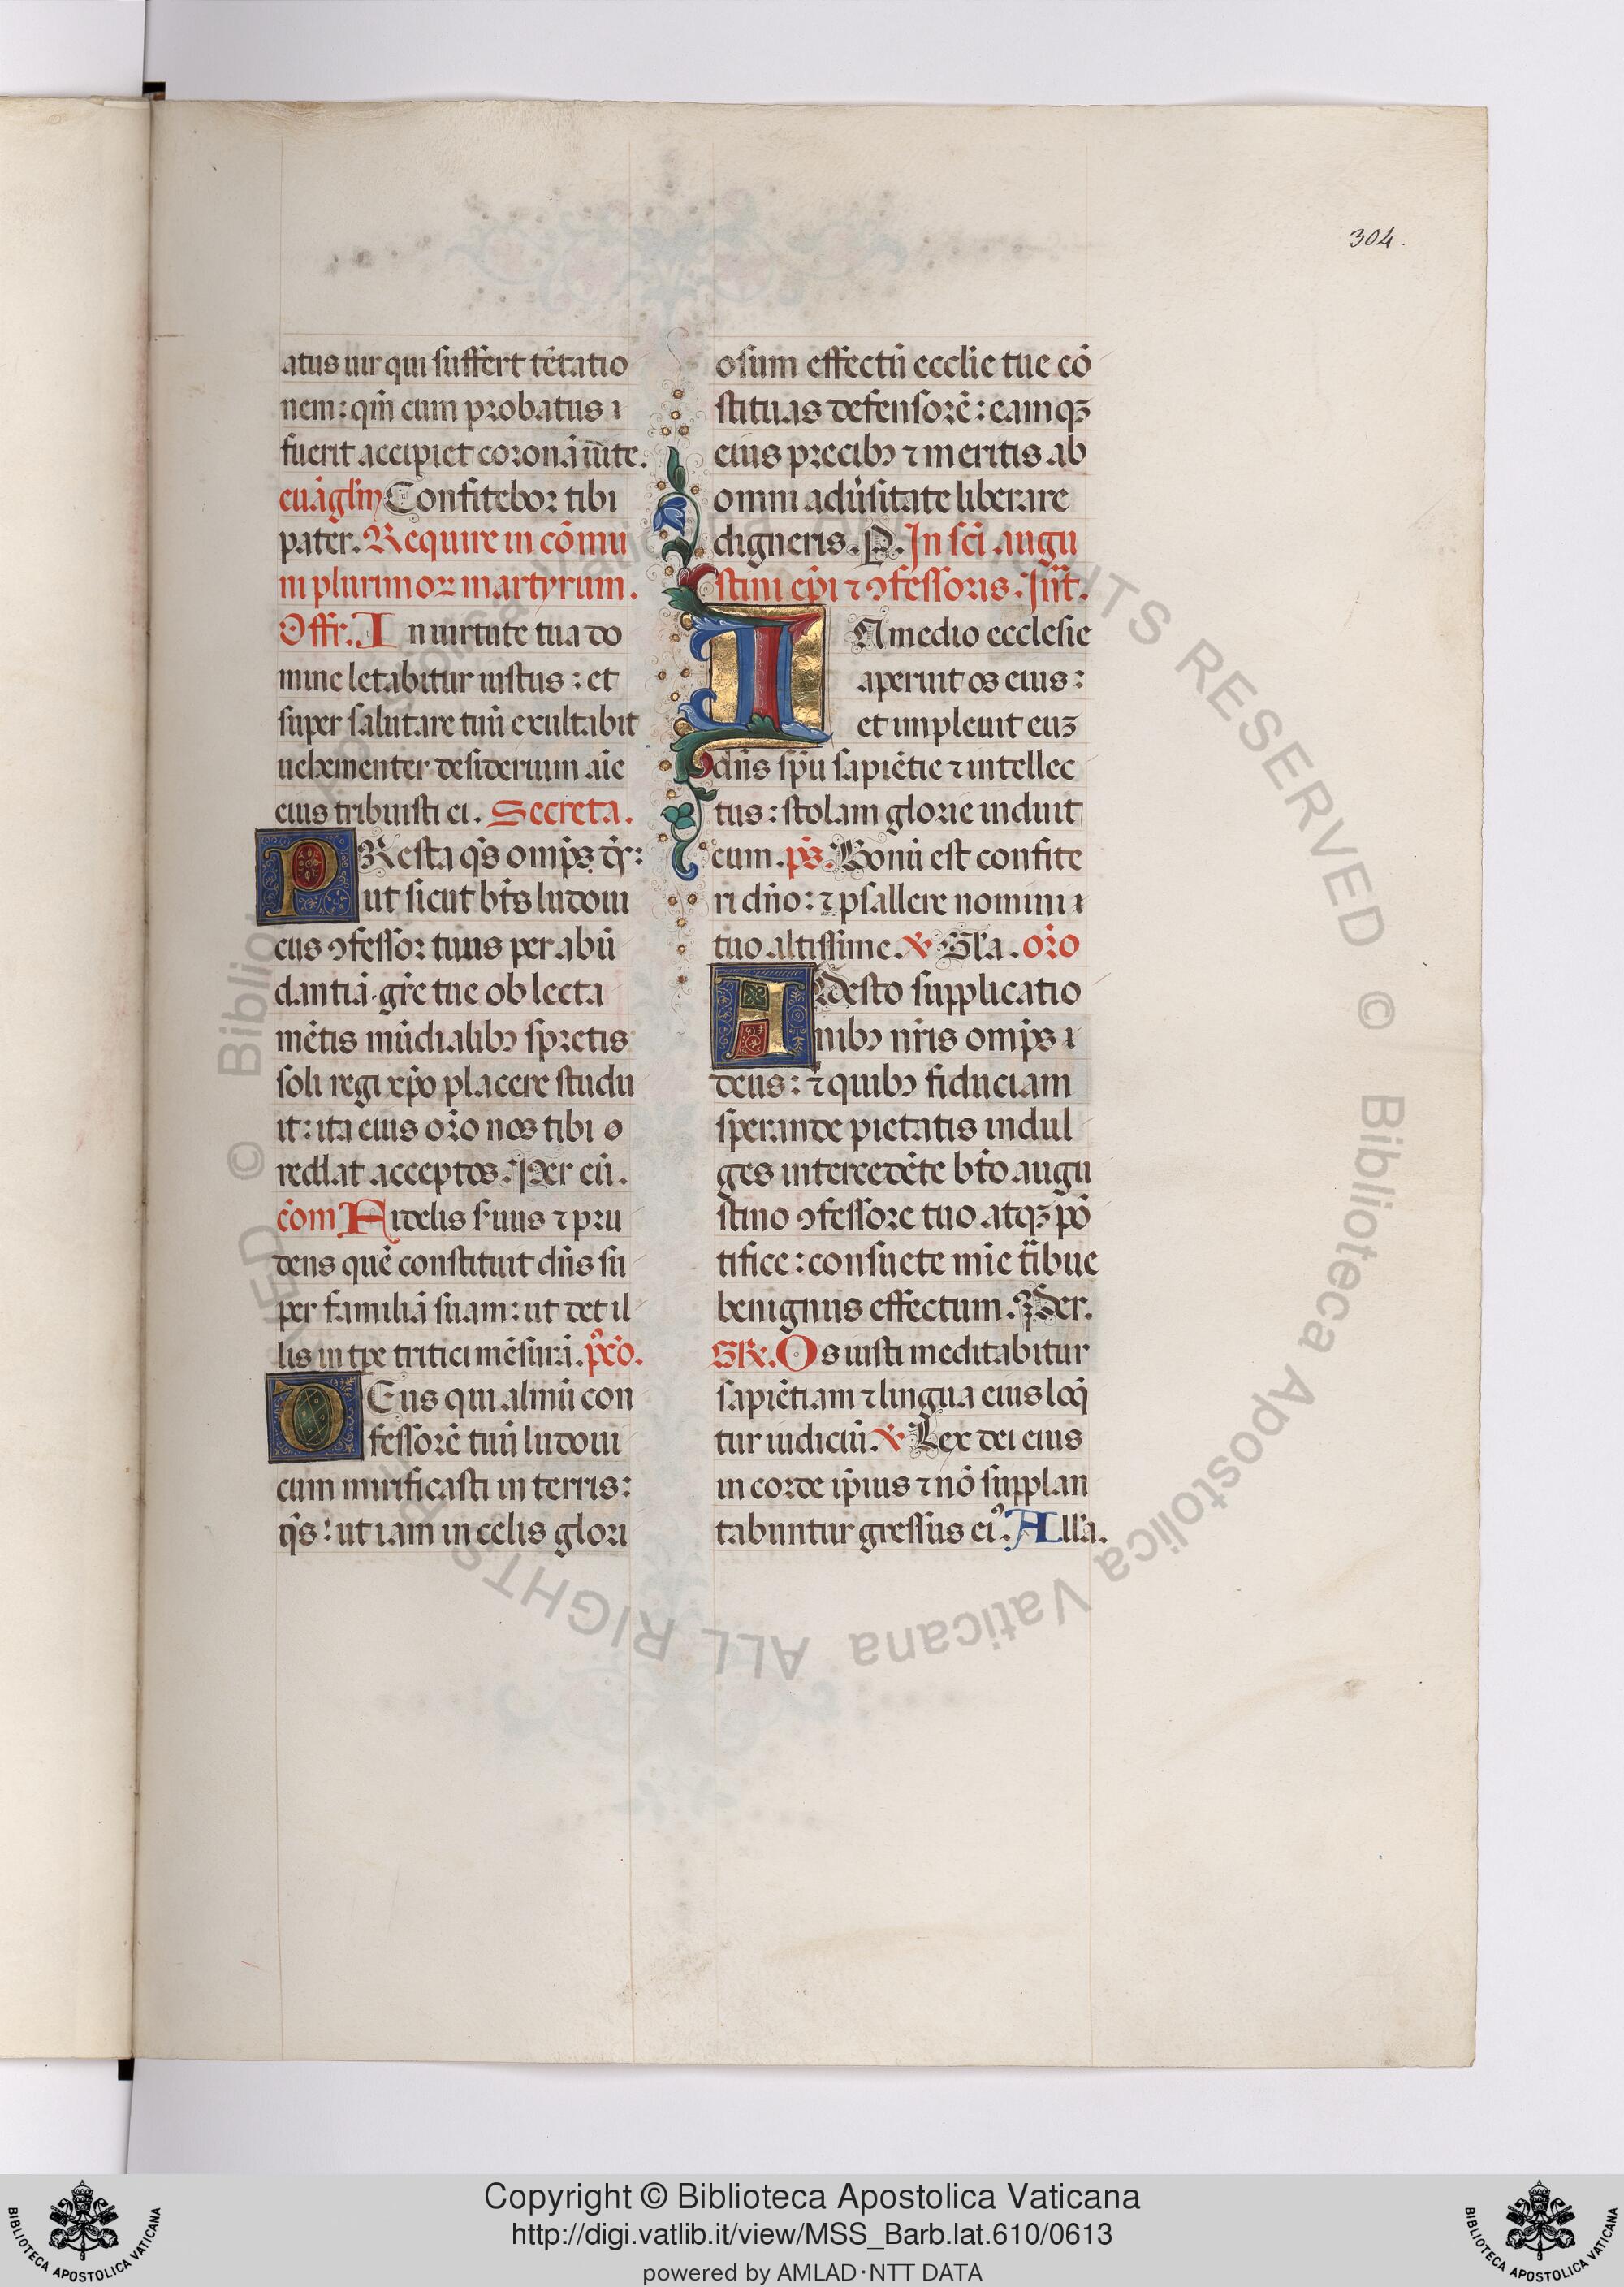 304.
atus uir qui suffert tētatio
nem: qm̄ cum probatus ı
fuerit accipiet coronā uite.
euāgliu Confitebor tibi
pater. Require in cōmu
ni plurimoꝝ martyrum.
Offr. In uirtute tua do
mine letabitur iustus: et
super salutare tuū exultabit
uehementer desiderium aīe
eius tribuisti ei. Secreta.
PResta qs̄ omp̄s ds̄:
ut sicut bt̄s ludoui
cus ꝯfessor tuus per abū
dantiā grē tue oblecta
mētis mūdialibꝫ spretis
soli regi xp̄o placere studu
it: ita eius orō nos tibi
reddat acceptos. Per eū.
cōm Fidelis suus ⁊ pru
dens quē constituit dn̄s su
per familiā suam: ut det il
lis in tp̄e tritici mēsurā. pꝰcō.
DEus qui almū con
fessorē tuū ludoui
cum mirificasti in terris:
qs̄: ut iam in celis glori
osum effectū ecclīe tue cō
stituas defensorē: eamqꝫ
eius precibꝫ ⁊ meritis ab
omni adūsitate liberare
digneris. P. In sc̄i augu
stini ep̄i ⁊ ꝯfessoris. Int̄.
IN medio ecclesie
aperuit os eius:
et impleuit euꝫ
dn̄s sp̄u sapiētie ⁊ intellec
tus: stolam glorie induit
eum. ps̄. Bonū est confite
ri dn̄o: ⁊ psallere nomini ı
tuo altissime. ℣ Gl̄a. orō
ADesto supplicatio
nibꝫ nr̄is omp̄s ı
deus: ⁊ quibꝫ fiduciam
sperande pietatis indul
ges intercedēte bt̄o augu
stino ꝯfessore tuo atqꝫ pō
tifice: consuete mīe tⁱbue
benignus effectum. Per.
GR. Os iusti meditabitur
sapiētiam ⁊ lingua eius loq̄
tur iudiciū. ℣ Lex dei eius
in corde ip̄ius ⁊ nō supplan
tabuntur gressus eiꝰ. All̄a.
© Biblioteca Apostolica Vaticana ALL RIGHTS RESERVED © Biblioteca Apostolica Vaticana ALL RIGHTS RESERVED
Copyright © Biblioteca Apostolica Vaticana
http://digi.vatlib.it/view/MSS_Barb.lat.610/0613
powered by AMLAD·NTT DATA
BIBLIOTECA APOSTOLICA VATICANA
BIBLIOTECA APOSTOLICA VATICANA